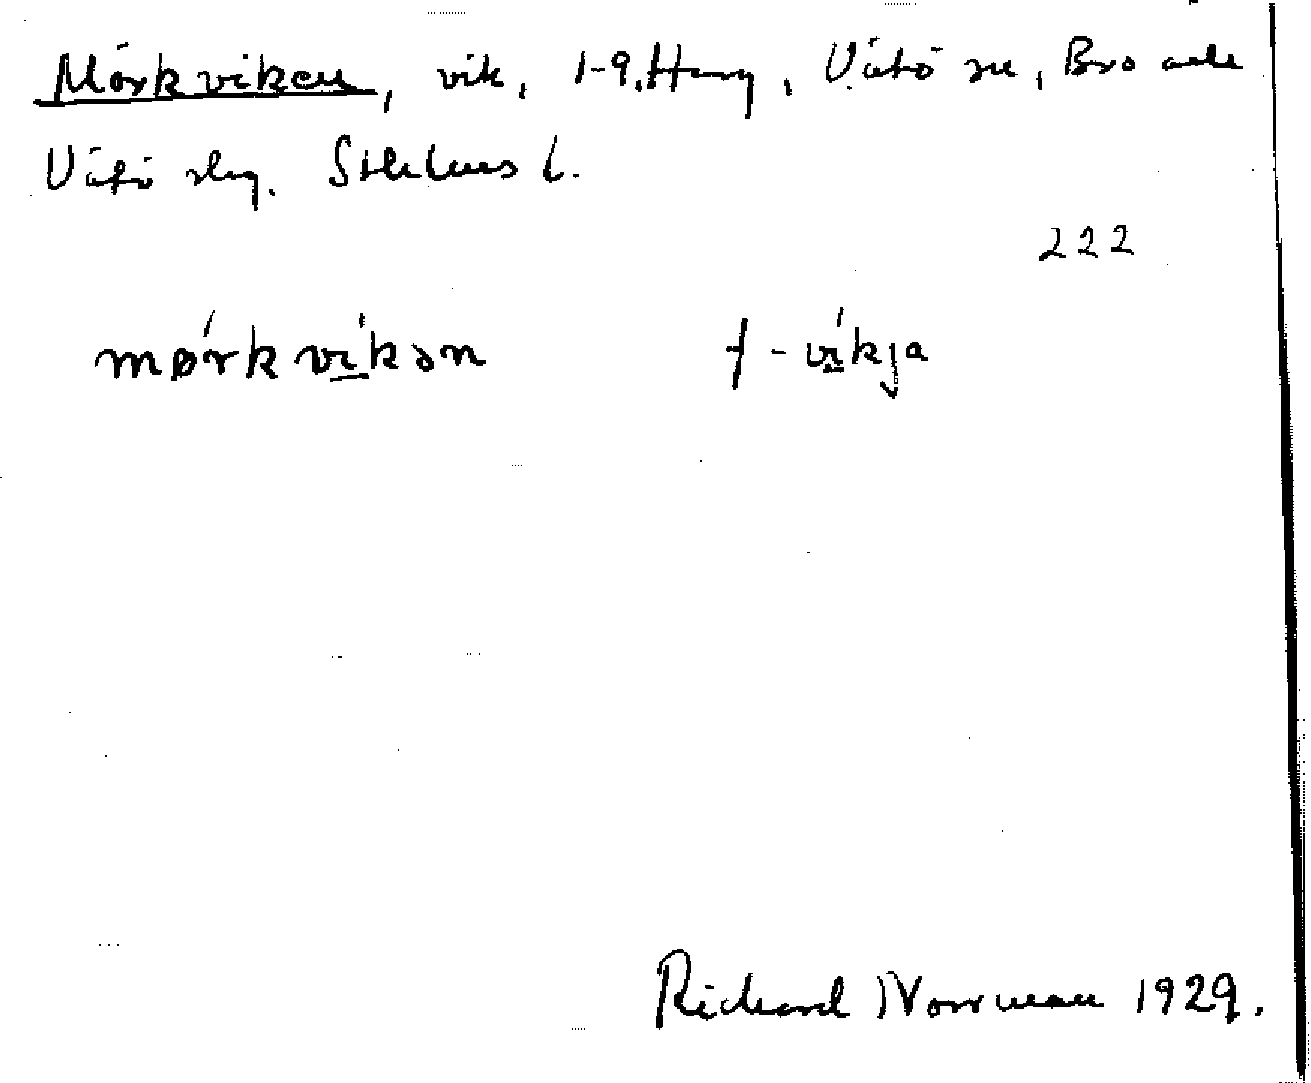 Mörkviken, vik, 1-9, Harg, Vätö sn, Bro och
Vätö slg. Sthlms l.
222
mørkvikən f -vikja
Richard Norrman 1929.